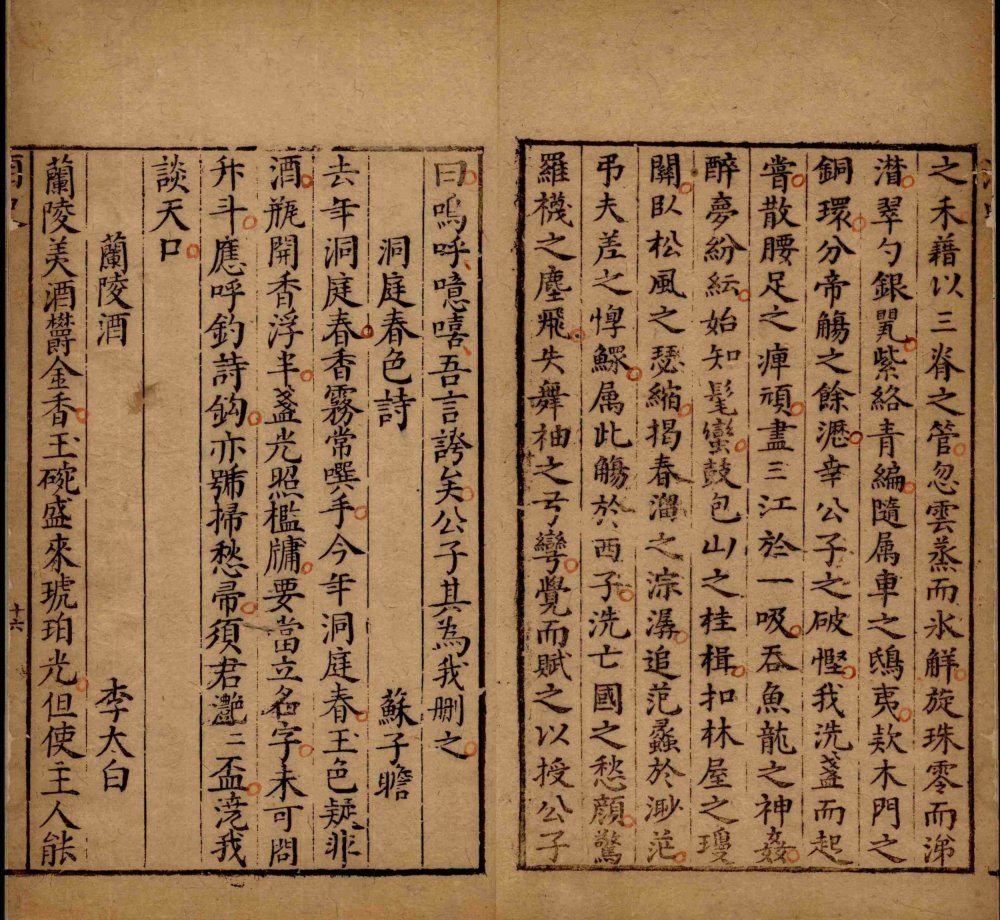 之禾藉以三脊之管忽雲蒸而氷觧旋珠零而涕
潸翠勺銀甖紫絡青綸隨属車之鴟夷欵木門之
銅環分帝觴之餘瀝幸公子之破慳我洗盞而起
嘗散腰足之痺頑盡三江於一吸吞魚龍之神姦
醉夢紛紜始知髦蠻鼓包山之桂楫扣林屋之瓊
關臥松風之瑟縮揭春溜之淙潺追范蠡於渺茫
弔夫差之惸鰥属此觴於西子洗亡國之愁顔驚
羅襪之塵飛失舞袖之弓彎覺而賦之以授公子
曰嗚呼噫嘻吾言誇矣公子其為我刪之
洞庭春色詩 蘇子瞻
去年洞庭春香霧常噀手今年洞庭春玉色疑非
酒瓶開香浮半盞光照檻牗要當立名字未可問
升斗應呼釣詩鈎亦號掃愁帚須君灎二盃澆我
談天口
蘭陵酒 李太白
蘭陵美酒欝金香玉碗盛來琥珀光但使主人能
十六